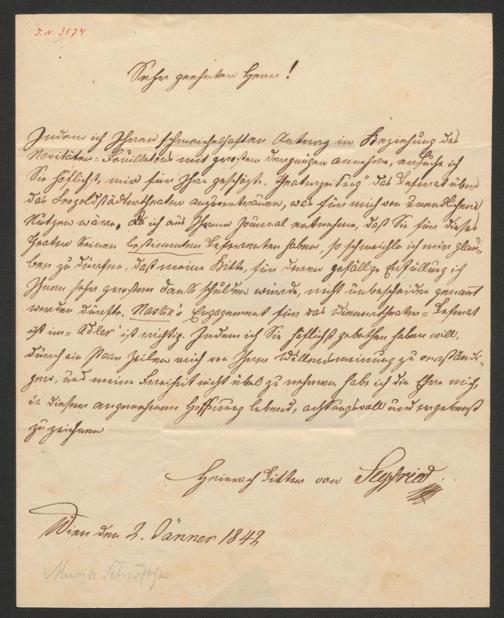 J. N. 3574
Sehr geehrter Herr!
Indem ich Ihren schmeichelhaften Antrag in Beziehung des
Novitäten-Feuilletons mit großem Vergnügen annehme, ersuche ich
Sie höflichst mir für Ihre geschäzte „Theaterzeitung" das Referat über
das Leopoldstädtertheater anzuvertrauen, was für mich von unendlichem
Nutzen wäre. Da ich aus Ihrem Journal entnehme, daß Sie für dieses
Theater keinen bestimmten Referenten haben, so schmeichle ich mir glau-
ben zu dürfen, daß meine Bitte, für deren gefällige Erfüllung ich
Ihnen sehr großen Dank schulden würde, nicht unbescheiden genannt
werden dürfte. Engagement für das Wiennertheater-Referat
ist im „Adler" ist richtig. Indem ich Sie höflichst gebethen haben will,
durch ein Paar Zeilen mich von Ihrer Willensmeinung zu verständi-
gen, und meine Freiheit nicht übel zu nehmen habe ich die Ehre mich
in dieser angenehmen Hoffnung lebend, achtungsvoll und ergebenst
zu zeichnen
Heinrich Ritter von Seyfried
Wien den 2. Jänner 1842